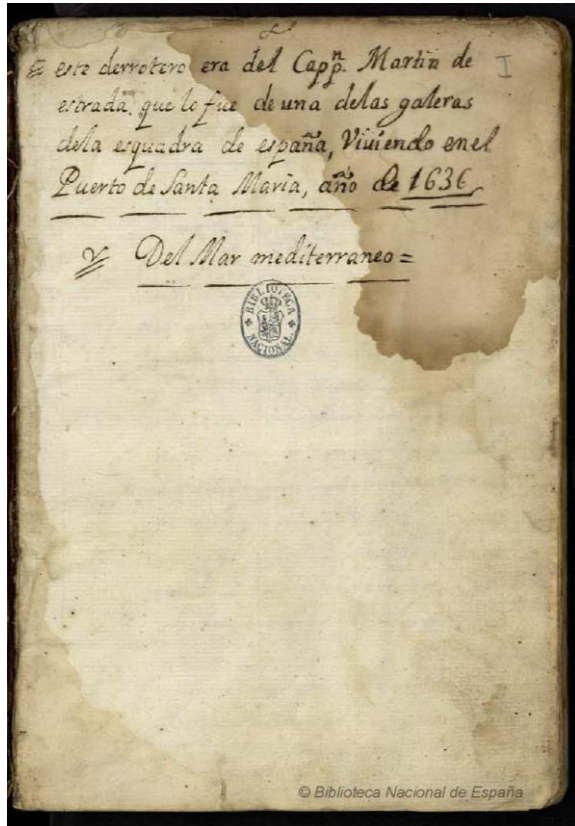 este derrotero era del Capp.n Martin de
estrada, que lo fue de una delas galeras
dela esquadra de españa, Viuiendo en el
Puerto de Santa Maria, año de 1636
Y Del Mar mediterraneo =
BIBLIOTECA
NACIONAL
© Biblioteca Nacional de España